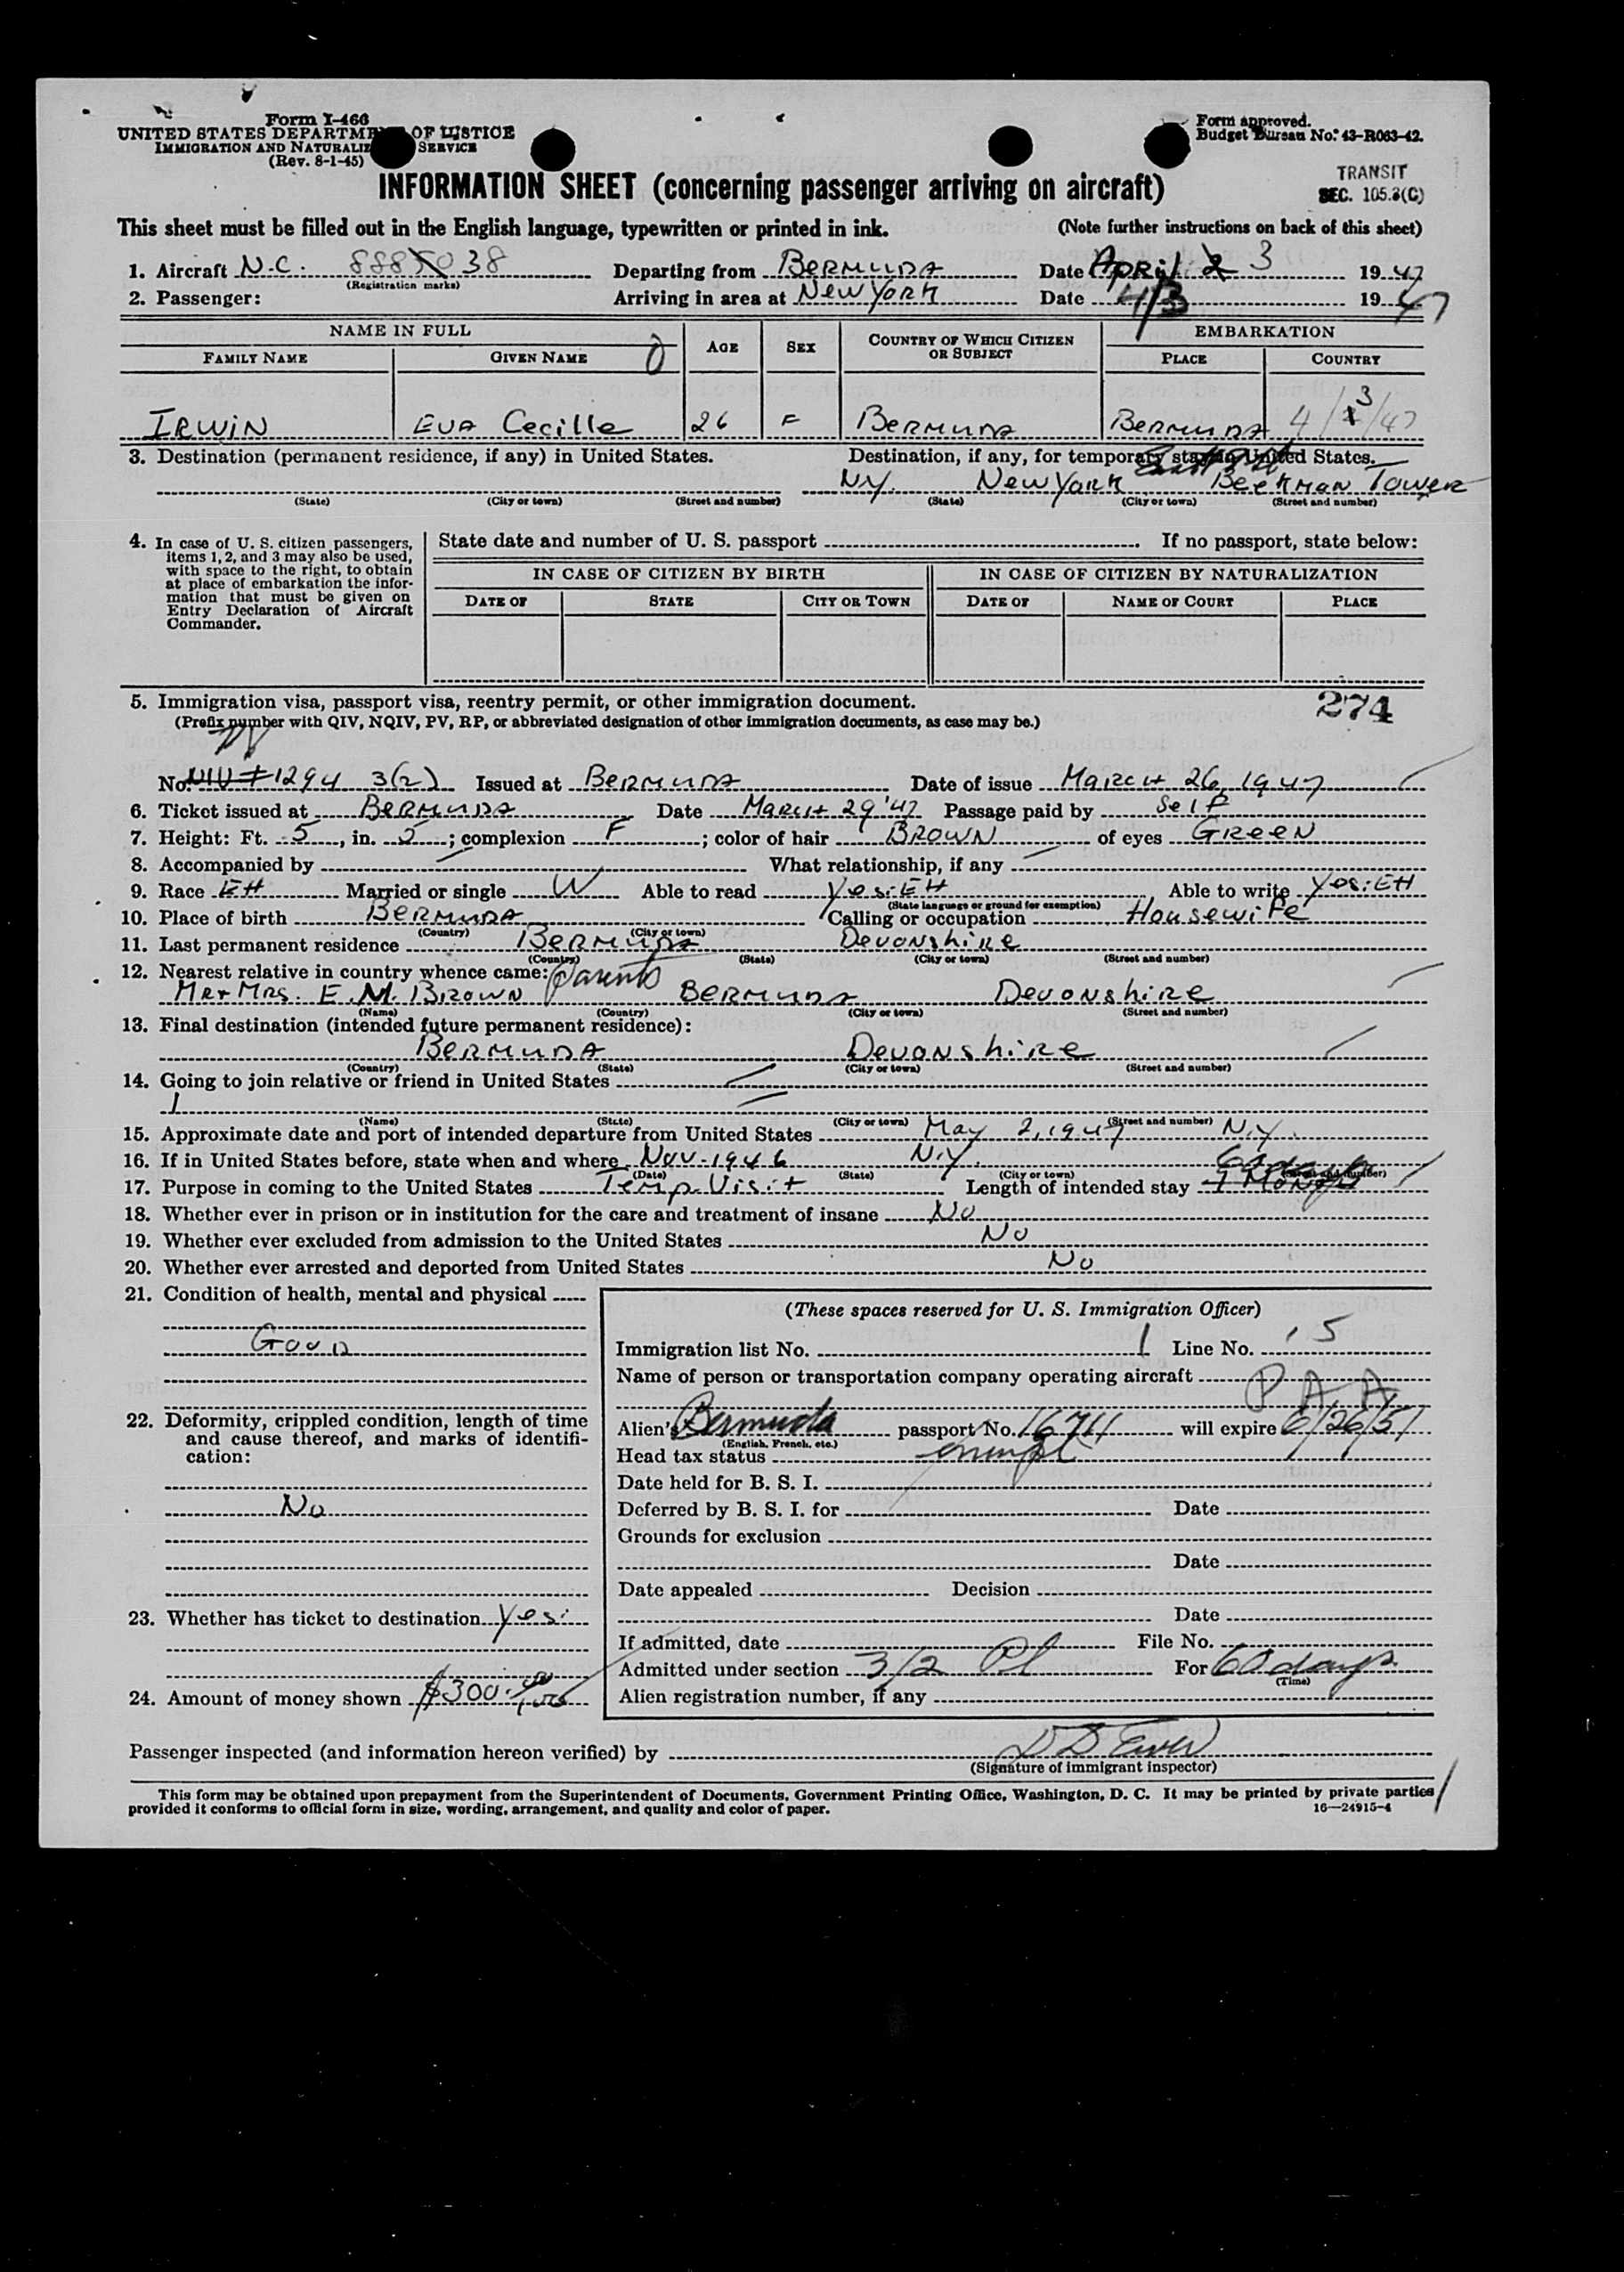 Form I-466
UNITED STATES DEPARTMENT OF JUSTICE
IMMIGRATION AND NATURALIZ SERVICE
(Rev. 8-1-45)
Form approved.
Budget Bureau No. 43-R063-42.
TRANSIT
SEC. 105.3(C)
INFORMATION SHEET (concerning passenger arriving on aircraft)
This sheet must be filled out in the English language, typewritten or printed in ink. (Note further instructions on back of this sheet)
1. Aircraft N.C. 888 38 Departing from BERMUDA Date APRil 2 3 1947
(Registration marks)
2. Passenger: Arriving in area at New YORK Date 4/3 1947
NAME IN FULL AGE SEX COUNTRY OF WHICH CITIZEN OR SUBJECT EMBARKATION
FAMILY NAME GIVEN NAME PLACE COUNTRY
IRWIN EVA Cecille 26 F BERMUDA BERMUDA 4/3/47
3. Destination (permanent residence, if any) in United States. Destination, if any, for temporary stay in United States.
N.Y. New YORK BeeKMAN Tower
(State) (City or town) (Street and number) (State) (City or town) (Street and number)
4. In case of U. S. citizen passengers, items 1, 2, and 3 may also be used, with space to the right, to obtain at place of embarkation the information that must be given on Entry Declaration of Aircraft Commander.
State date and number of U. S. passport . If no passport, state below:
IN CASE OF CITIZEN BY BIRTH IN CASE OF CITIZEN BY NATURALIZATION
DATE OF STATE CITY OR TOWN DATE OF NAME OF COURT PLACE
5. Immigration visa, passport visa, reentry permit, or other immigration document. 274
(Prefix number with QIV, NQIV, PV, RP, or abbreviated designation of other immigration documents, as case may be.)
PV
No. NIV # 1294 3(2) Issued at BERMUDA Date of issue MARCH 26, 1947
6. Ticket issued at BERMUDA Date MARCH 29 '47 Passage paid by Self
7. Height: Ft. 5, in. 5; complexion F; color of hair BROWN of eyes GREEN
8. Accompanied by What relationship, if any
9. Race EH Married or single W Able to read Yes: EH Able to write Yes: EH
(State language or ground for exemption)
10. Place of birth BERMUDA Calling or occupation Housewife
(Country) (City or town)
11. Last permanent residence BERMUDA DEVONSHIRE
(Country) (State) (City or town) (Street and number)
12. Nearest relative in country whence came: Parents
MR + MRS. E.M. BROWN BERMUDA DEVONSHIRE
(Name) (Country) (City or town) (Street and number)
13. Final destination (intended future permanent residence):
BERMUDA DEVONSHIRE
(Country) (State) (City or town) (Street and number)
14. Going to join relative or friend in United States
(Name) (State) (City or town) (Street and number)
15. Approximate date and port of intended departure from United States May 2, 1947 N.Y.
16. If in United States before, state when and where Nov-1946 N.Y.
(Date) (State) (City or town) (Street and number)
17. Purpose in coming to the United States Temp. Visit Length of intended stay 1 Month 60 days
18. Whether ever in prison or in institution for the care and treatment of insane No
19. Whether ever excluded from admission to the United States No
20. Whether ever arrested and deported from United States No
21. Condition of health, mental and physical
GOOD
22. Deformity, crippled condition, length of time and cause thereof, and marks of identification:
No
23. Whether has ticket to destination Yes:
24. Amount of money shown $300.00
(These spaces reserved for U. S. Immigration Officer)
Immigration list No. 1 Line No. 5
Name of person or transportation company operating aircraft
P A A
Alien's Bermuda passport No. 16711 will expire 6/26/51
(English, French, etc.)
Head tax status exempt
Date held for B. S. I.
Deferred by B. S. I. for Date
Grounds for exclusion
Date
Date appealed Decision
Date
If admitted, date File No.
Admitted under section 3/2 Pl For 60 days
(Time)
Alien registration number, if any
Passenger inspected (and information hereon verified) by
(Signature of immigrant inspector)
This form may be obtained upon prepayment from the Superintendent of Documents, Government Printing Office, Washington, D. C. It may be printed by private parties
provided it conforms to official form in size, wording, arrangement, and quality and color of paper. 16—24915-4